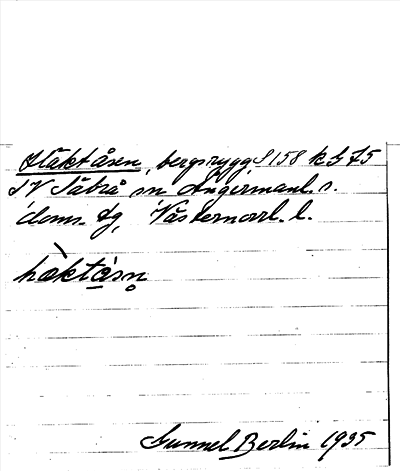 Häktåsen, bergsrygg S 158 k G 75
SV Säbrå sn Ångermanl. s.
doms. fg, Västernorrl. l.
hæktåsn̥
Gunnel Berlin 1935